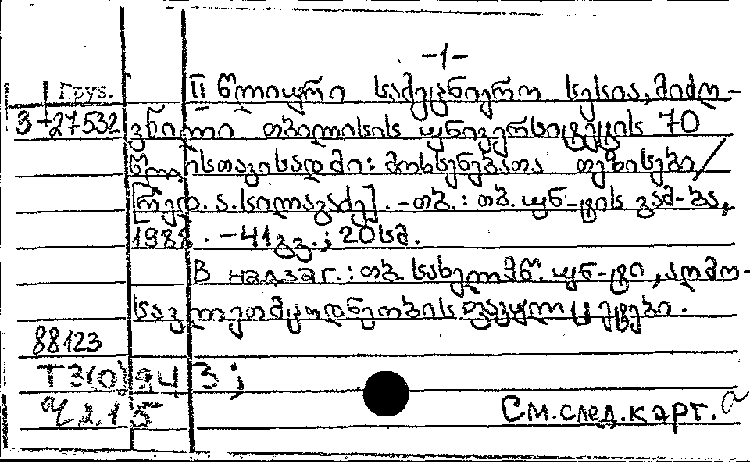 -1-
Груз. II წლიური სამეცნიერო სესია, მიძღ-
3-27532 ვნილი თბილისის უნივერსიტეტის 70
წლისთავისადმი: მოხსენებათა თეზისები/
[რედ. ა. სილაგაძე]. -თბ.: თბ. უნ-ტის გამ-ბა,
1988. -41 გვ.; 20 სმ.
В надзаг.: თბ. სახელმწ. უნ-ტი, აღმო-
სავლეთმცოდნეობის ფაკულტეტი.
88123
Т3(0)943;
Ч2.15
См.след.карт.